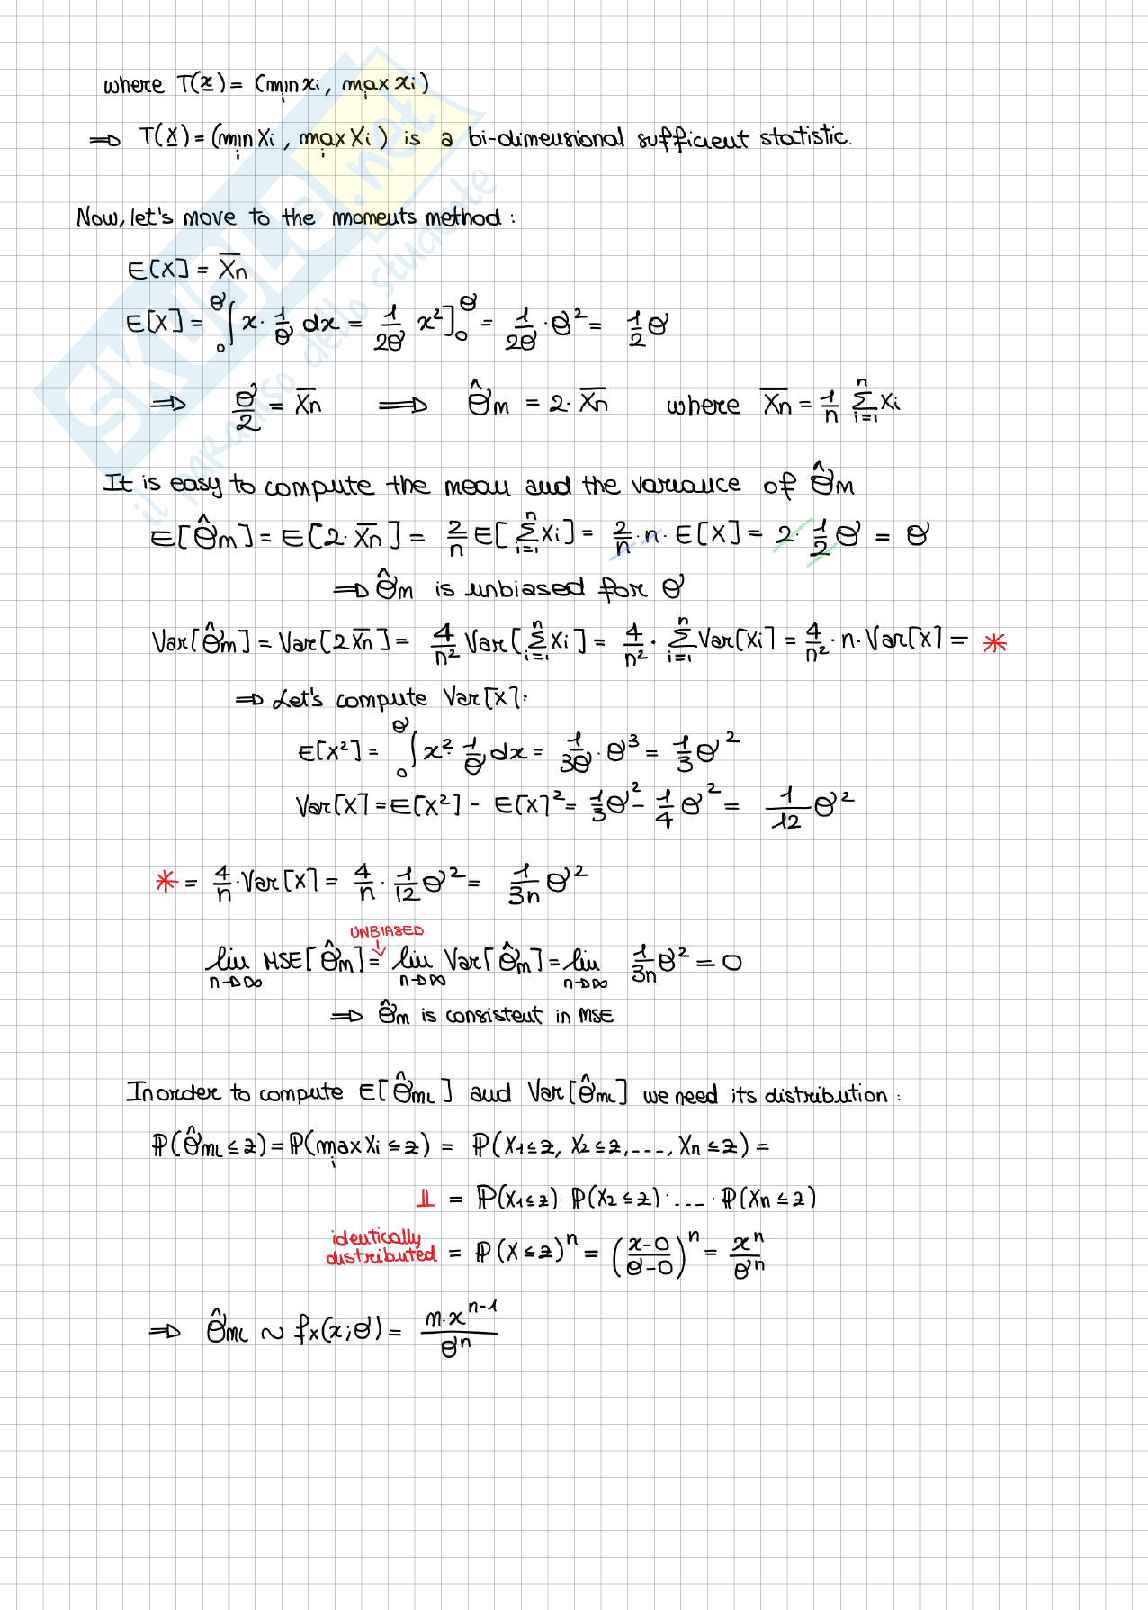 where T(x) = (min xi, max xi)
i i
⇒ T(X) = (min Xi, max Xi) is a bi-dimensional sufficient statistic.
i i
Now, let's move to the moments method:
E[X] = X̅n
E[X] = ₀∫^θ x · 1/θ dx = 1/2θ x²]₀^θ = 1/2θ · θ² = 1/2 θ
⇒ θ/2 = X̅n ⟹ θ̂M = 2 · X̅n where X̅n = 1/n Σ_{i=1}^n Xi
It is easy to compute the mean and the variance of θ̂M
E[θ̂M] = E[2 · X̅n] = 2/n E[Σ_{i=1}^n Xi] = 2/n · n · E[X] = 2 · 1/2 θ = θ
⇒ θ̂M is unbiased for θ
Var[θ̂M] = Var[2X̅n] = 4/n² Var[Σ_{i=1}^n Xi] = 4/n² · Σ_{i=1}^n Var[Xi] = 4/n² · n · Var[X] = *
⇒ Let's compute Var[X]:
E[X²] = ₀∫^θ x² · 1/θ dx = 1/3θ · θ³ = 1/3 θ²
Var[X] = E[X²] - E[X]² = 1/3 θ² - 1/4 θ² = 1/12 θ²
* = 4/n · Var[X] = 4/n · 1/12 θ² = 1/3n θ²
UNBIASED
↓
lim_{n→∞} MSE[θ̂M] = lim_{n→∞} Var[θ̂M] = lim_{n→∞} 1/3n θ² = 0
⇒ θ̂M is consistent in MSE
In order to compute E[θ̂ML] and Var[θ̂ML] we need its distribution:
P(θ̂ML ≤ z) = P(max Xi ≤ z) = P(X1 ≤ z, X2 ≤ z, ...., Xn ≤ z) =
i
⫫ = P(X1 ≤ z) P(X2 ≤ z) · .... · P(Xn ≤ z)
identically
distributed = P(X ≤ z)^n = ((x-0)/(θ-0))^n = x^n/θ^n
⇒ θ̂ML ~ fx(x;θ) = n·x^{n-1}/θ^n
SKUOLA.net
il paradiso dello studente